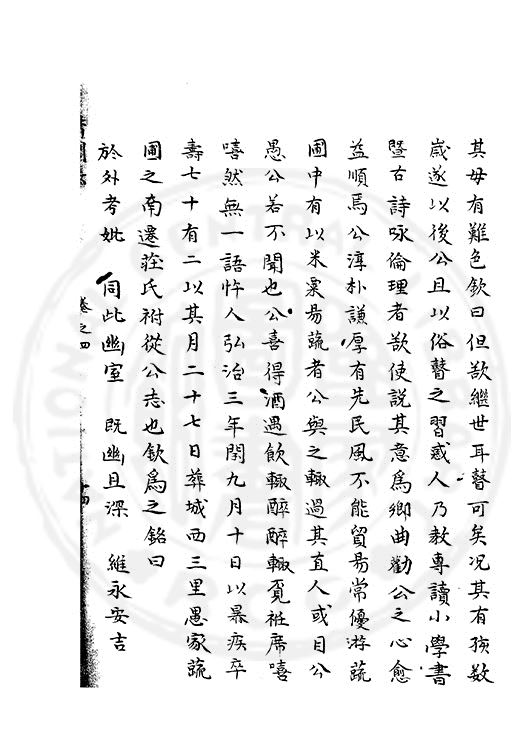 其母有難色欽曰但欲繼世耳瞽可矣况其有孩數
歲遂以後公且以俗瞽之習惑人乃教專讀小學書
暨古詩咏倫理者欲使說其意爲鄉曲勸公之心愈
益順焉公淳朴謙厚有先民風不能貿易常優游蔬
圃中有以米粟易蔬者公與之輙過其直人或目公
愚公若不聞也公喜得酒遇飲輙醉醉輙覓袵席嘻
嘻然無一語忤人弘治三年閏九月十日以暴疾卒
壽七十有二以其月二十七日葬城西三里愚家蔬
圃之南遷莊氏祔從公志也欽爲之銘曰
於外考妣　同此幽室　既幽且深　維永安吉
卷之四